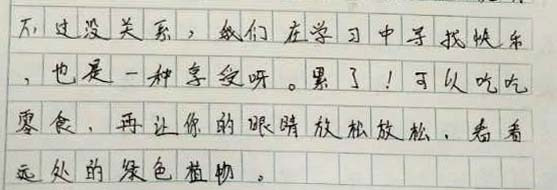 不过没关系，我们在学习中寻找快乐
，也是一种享受呀。累了！可以吃吃
零食，再让你的眼睛放松放松，看看
远处的绿色植物。